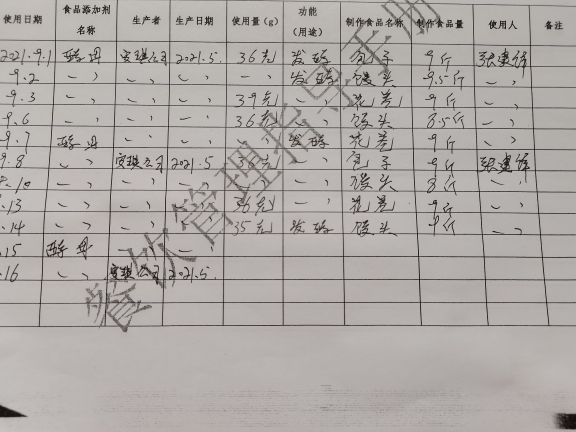 使用日期 食品添加剂名称 生产者 生产日期 使用量（g） 功能（用途） 制作食品名称 制作食品量 使用人 备注
2021.9.1 酵母 安琪公司 2021.5. 36克 发酵 包子 9斤
9.2 〃 〃 〃 〃 发酵 馒头 9.5斤 〃
9.3 〃 〃 〃 39克 〃 花卷 9斤 〃
9.6 〃 〃 〃 36克 〃 馒头 8.5斤 〃
9.7 酵母 〃 〃 〃 发酵 花卷 9斤 〃
9.8 〃 安琪公司 2021.5 38克 〃 包子 9斤
10 〃 〃 〃 〃 〃 馒头 8斤 〃
.13 〃 〃 〃 36克 〃 花卷 9斤 〃
.14 〃 〃 〃 35克 发酵 馒头 9斤 〃
.15 酵母 〃 〃
.16 〃 安琪公司 2021.5.
餐饮管理指导手册